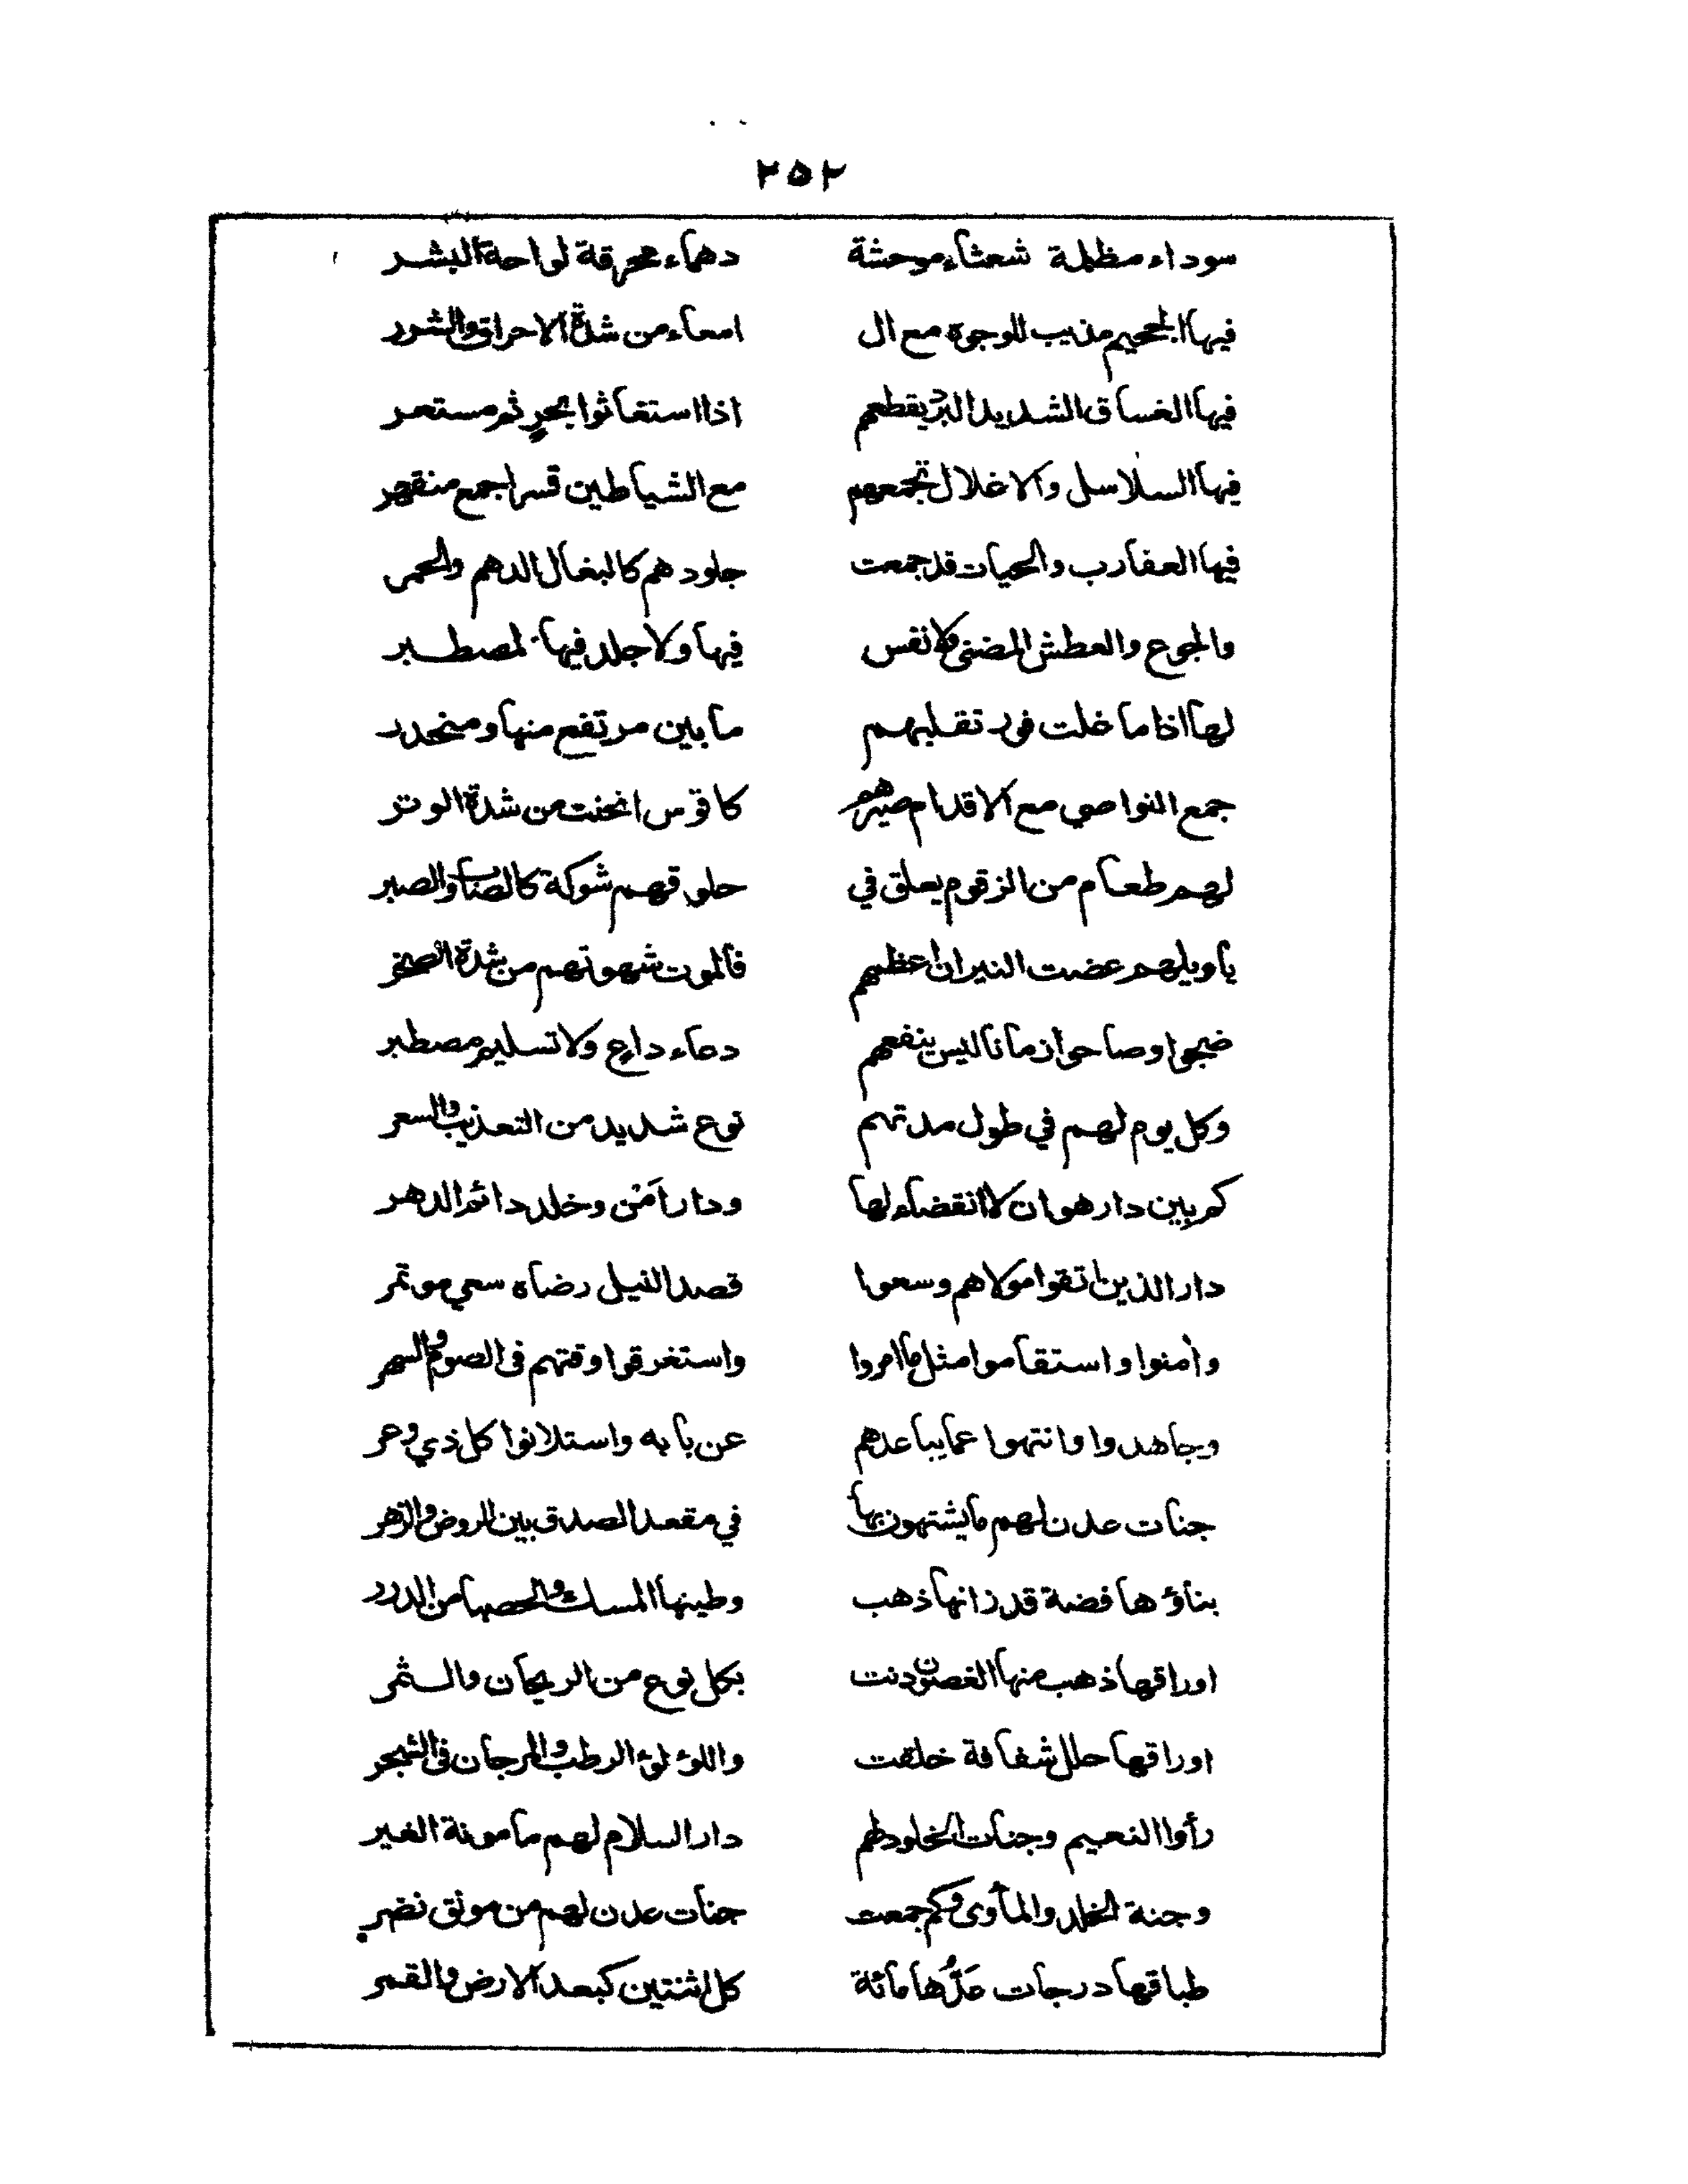 ٢٥٢
سوداء مظلمة شعثاء موحشة دهماء محرقة لواحة البشر
فيها الجحيم مذيب للوجوه مع ال امعاء من شدة الاحراق والشرر
فيها الغساق الشديد البرد يقطعهم اذا استغاثوا بحرٍ ثم مستعر
فيها السلاسل والاغلال تجمعهم مع الشياطين قسرا جمع منقهر
فيها العقارب والحيات قد جمعت جلودهم كالبغال الدهم والحمر
والجوع والعطش المضنى ولا نفس فيها ولا جلد فيها لمصطبر
لها اذا ما غلت فور تقلبهم ما بين مرتفع منها ومنحدر
جمع النواصي مع الاقدام صيرهم كاقوس انحنت من شدة الوتر
لهم طعام من الزقوم يعلق في حلوقهم شوكة كالصاب والصبر
يا ويلهم عضت النيران اعظمهم فالموت شهوتهم من شدة الضجر
ضجوا وصاحوا زمانا ليس ينفعهم دعاء داعٍ ولا تسليم مصطبر
وكل يوم لهم في طول مدتهم نوع شديد من التعذيب والسعر
كم بين دار هوان لا انقضاء لها ودار امن وخلد دائم الدهر
دار الذين اتقوا مولاهم وسعوا قصدا لنيل رضاه سعي موتمر
وامنوا واستقاموا مثل ما امروا واستغرقوا وقتهم فى الصوم والسهر
وجاهدوا وانتهوا عما يباعدهم عن بابه واستلانوا كل ذي وعر
جنات عدن لهم ما يشتهون بها في مقعد الصدق بين الروض والزهر
بناؤها فضة قد زانها ذهب وطينها المسك والحصبا من الدرر
اوراقها ذهب منها الغصون دنت بكل نوع من الريحان والثمر
اوراقها حلل شفافة خلقت واللؤلؤ الرطب والمرجان فى الشجر
رأوا النعيم وجنات الخلود لهم دار السلام لهم مامونة الغير
وجنة الخلد والمأوى وكم جمعت جنات عدن لهم من مونق نضر
طباقها درجات عدُّها مائة كل اثنتين كبعد الارض والقمر